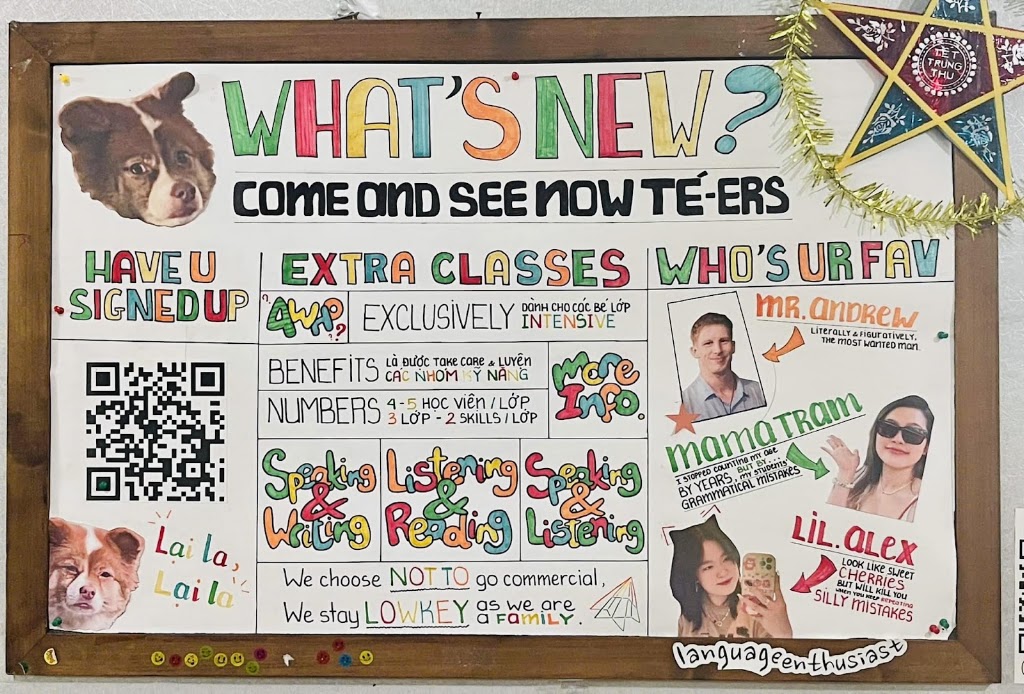 WHAT'S NEW?
COME AND SEE NOW TÉ-ERS
TẾT
TRUNG
THU
HAVE U
SIGNED UP
Lại la,
Lại la
EXTRA CLASSES
4WA?
EXCLUSIVELY DÀNH CHO CÁC BÉ LỚP
INTENSIVE
BENEFITS LÀ ĐƯỢC TAKE CARE & LUYỆN
CÁC NHÓM KỸ NĂNG
NUMBERS 4-5 HỌC VIÊN / LỚP
3 LỚP - 2 SKILLS / LỚP
more
Info.
Speaking
&
Writing
Listening
&
Reading
Speaking
&
Listening
We choose NOT TO go commercial,
We stay LOWKEY as we are
a FAMILY.
WHO'S UR FAV
MR. ANDREW
LITERALLY & FIGURATIVELY,
THE MOST WANTED MAN.
MAMA TRAM
I STOPPED COUNTING MY AGE
BY YEARS, BUT BY...
MY STUDENTS'
GRAMMATICAL MISTAKES
LIL. ALEX
LOOK LIKE SWEET
CHERRIES
BUT WILL KILL YOU
WHEN YOU KEEP REPEATING
SILLY MISTAKES
languageenthusiast